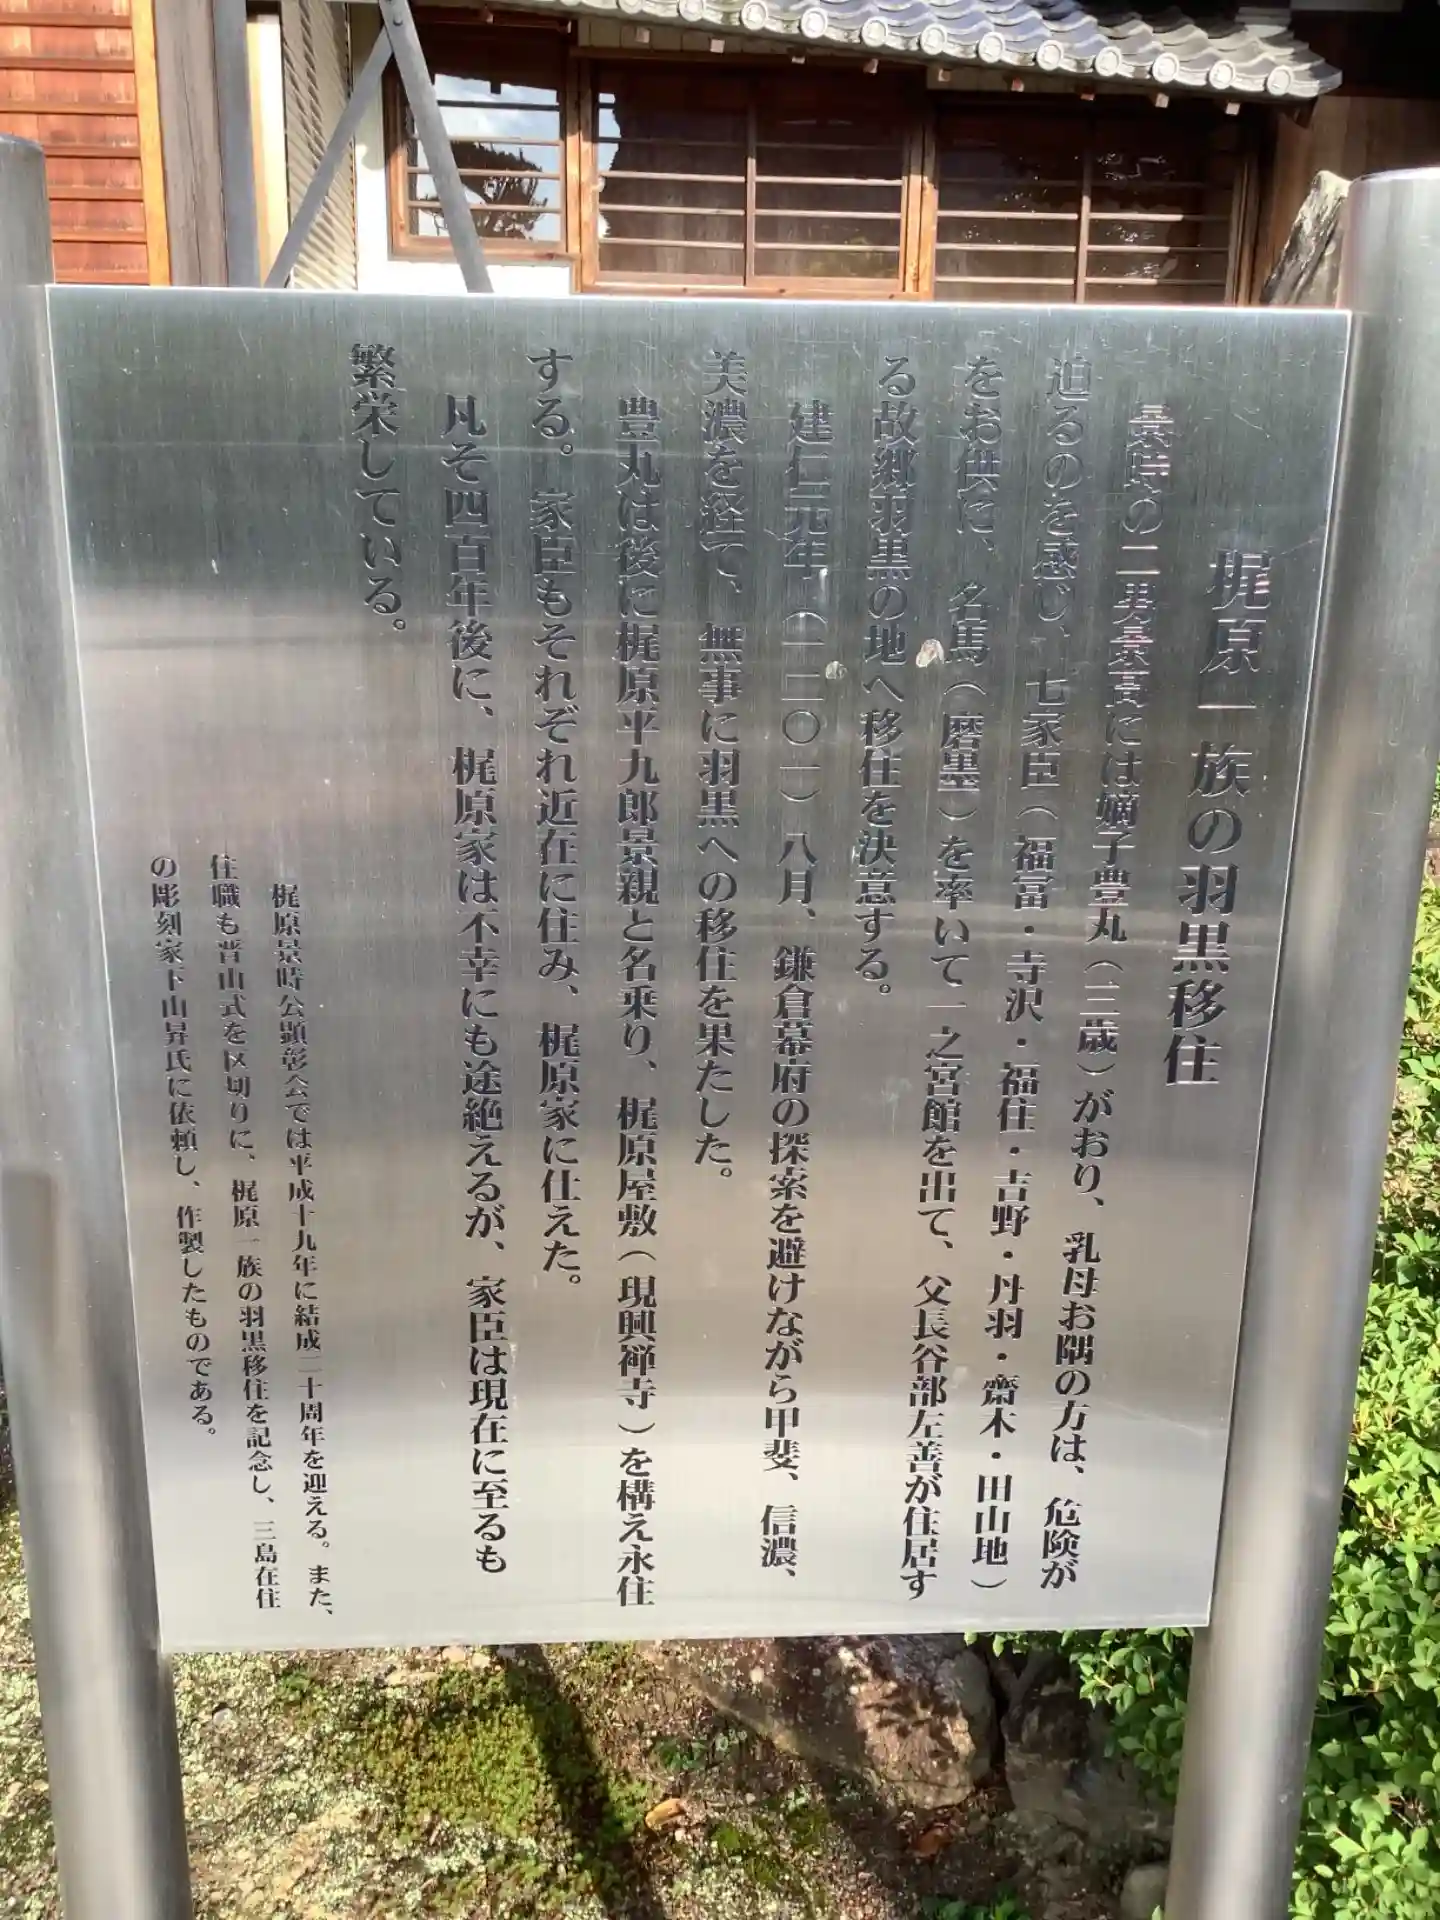 梶原一族の羽黒移住
景時の二男景高には嫡子豊丸(三歳)がおり、乳母お隅の方は、危険が
迫るのを感じ、七家臣(福富・寺沢・福住・吉野・丹羽・齋木・田山地)
をお供に、名馬(磨墨)を率いて一之宮館を出て、父長谷部左善が住居す
る故郷羽黒の地へ移住を決意する。
建仁元年(一二〇一)八月、鎌倉幕府の探索を避けながら甲斐、信濃、
美濃を経て、無事に羽黒への移住を果たした。
豊丸は後に梶原平九郎景親と名乗り、梶原屋敷(現興禅寺)を構え永住
する。家臣もそれぞれ近在に住み、梶原家に仕えた。
凡そ四百年後に、梶原家は不幸にも途絶えるが、家臣は現在に至るも
繁栄している。
梶原景時公顕彰会では平成十九年に結成二十周年を迎える。また、
住職も晋山式を区切りに、梶原一族の羽黒移住を記念し、三島在住
の彫刻家下山昇氏に依頼し、作製したものである。